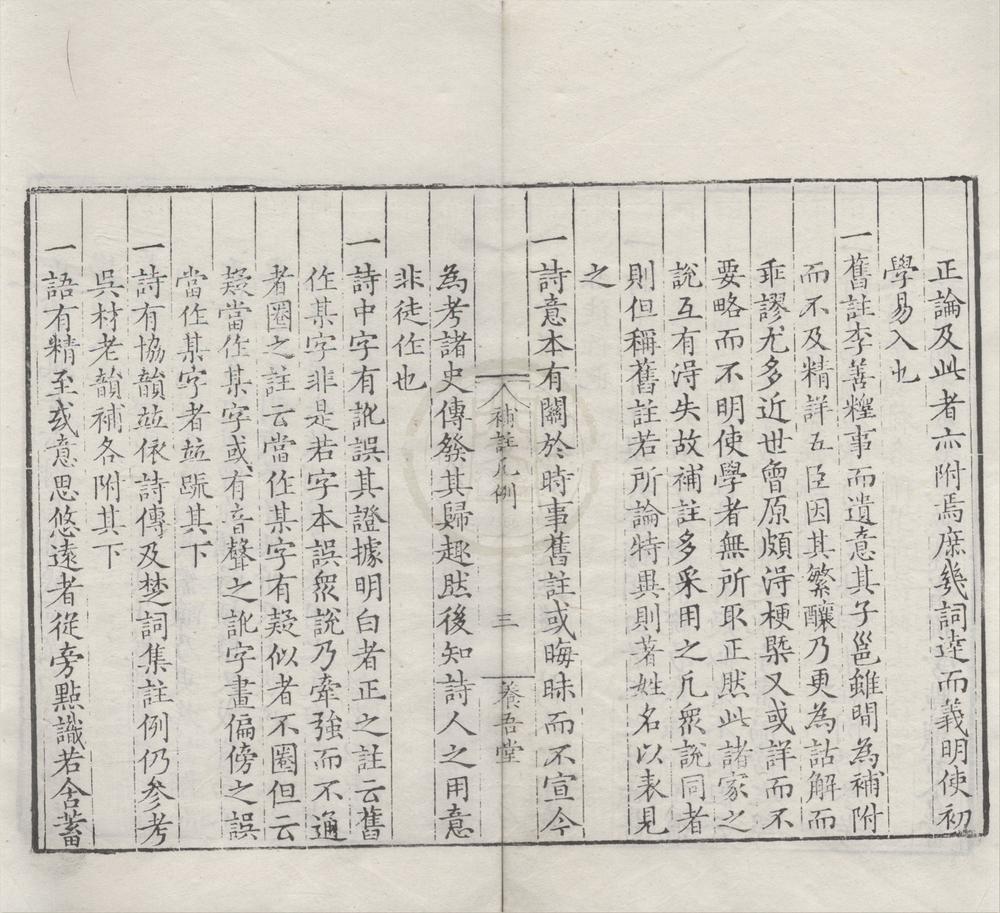 正論及此者亦附焉庶幾詞達而義明使初
學易入也
一舊註李善糧事而遺意其子邕雖閒為補附
而不及精詳五臣因其繁釀乃更為詁解而
乖謬尤多近世曾原頗淂梗槩又或詳而不
要略而不明使學者無所取正然此諸家之
說互有淂失故補註多采用之凡衆說同者
則但稱舊註若所論特異則著姓名以表見
之
一詩意本有關於時事舊註或晦昧而不宣今
補註凡例
三
養吾堂
為考諸史傳發其歸趣然後知詩人之用意
非徒作也
一詩中字有訛誤其證據明白者正之註云舊
作某字非是若字本誤衆說乃牽強而不通
者圈之註云當作某字有疑似者不圈但云
疑當作某字或有音聲之訛字畫偏傍之誤
當作某字者並䟽其下
一詩有協韻並依詩傳及楚詞集註例仍參考
吳材老韻補各附其下
一語有精至或意思悠遠者從旁點識若含蓄